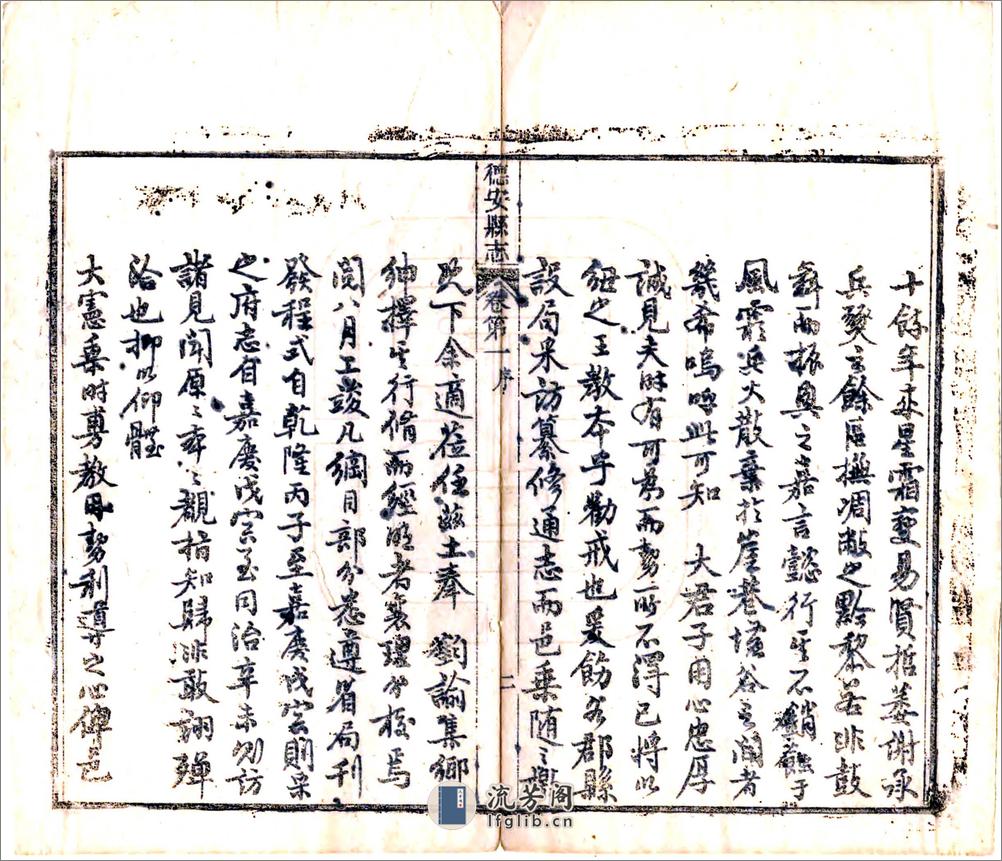 十餘年來星霜變易賢哲萎謝承
兵燹之餘區撫凋敝之黔黎若非鼓
舞而振興之嘉言懿行其不銷蝕于
風霜兵火散棄於崖巷墟谷之間者
幾希嗚呼此可知 大君子用心忠厚
誠見夫時有可為而勢所不得已將以
紐之王教本乎勸戒也爰飭各郡縣
設局采訪纂修通志而邑乘隨之
德安縣志 卷第一 序 二
既下余適蒞任茲土奉 劄諭集鄉
紳擇其行脩而經明者襄理分校焉
閱八月工竣凡綱目部分悉遵省局刊
發程式自乾隆丙子至嘉慶戊寅則采
之府志自嘉慶戊寅至同治辛未則訪
諸見聞原原本本之觀指知歸非敢詡殫
洽也抑以仰體
大憲乘時勇教因勢利導之心俾邑
流芳阁
lfglib.cn